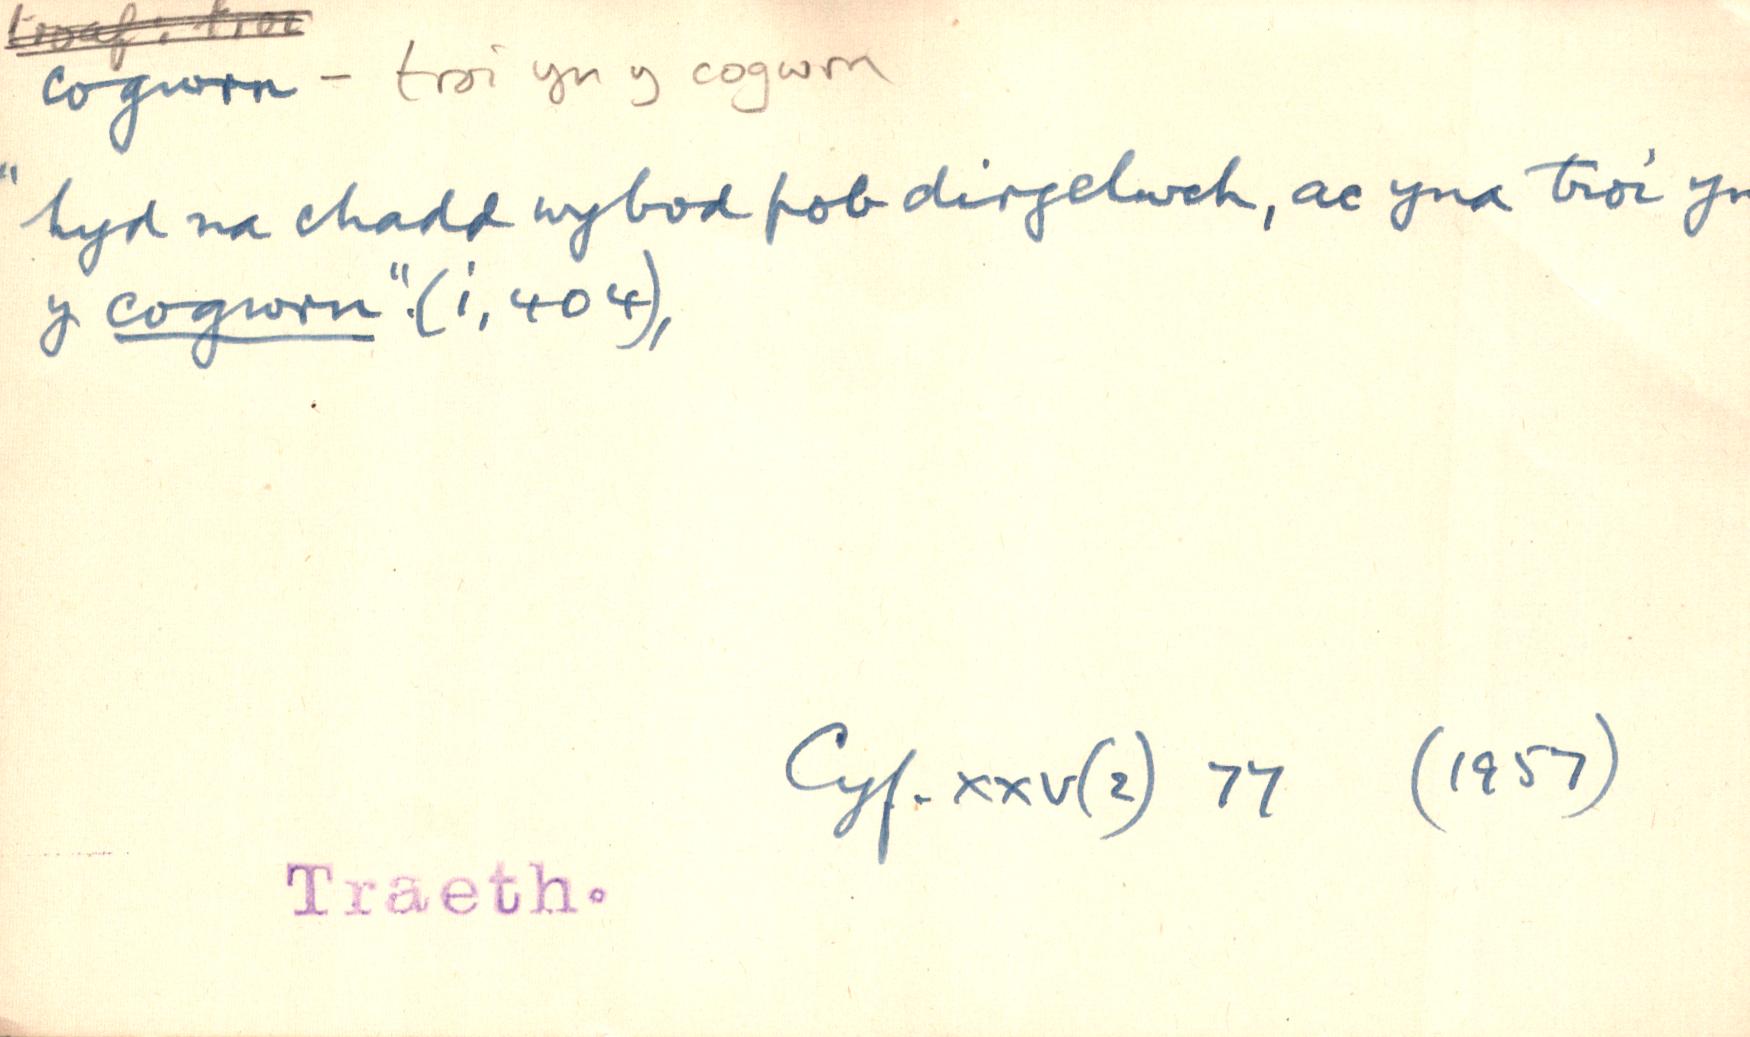 troaf: troi
cogwrn - troi yn y cogwrn
"hyd na chadd wybod pob dirgelwch, ac yna troi yn
y cogwrn". (i, 404),
Cyf. xxv(2) 77 (1957)
Traeth.